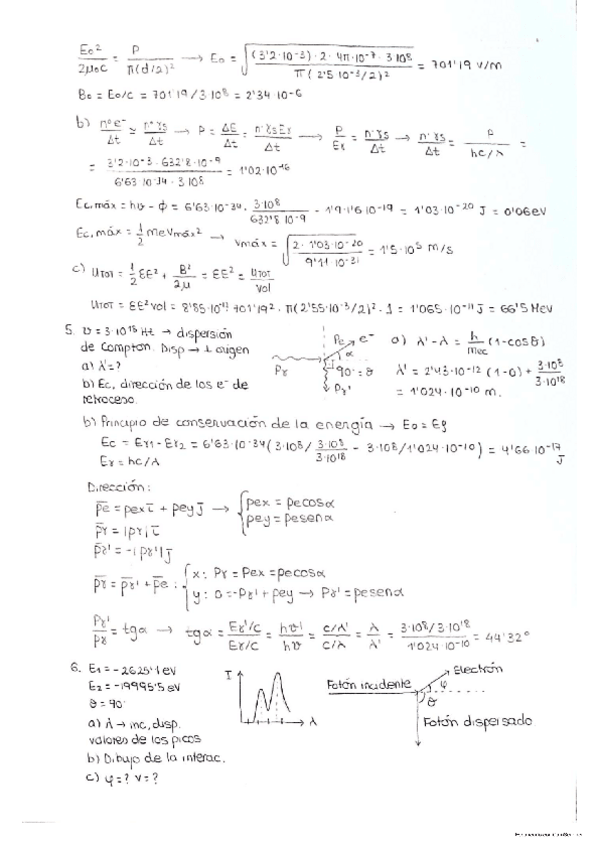 E₀²/2μ₀c = P/π(d/2)² → E₀ = √((3'2·10⁻³)·2·4π·10⁻⁷·3·10⁸ / π(2'5 10⁻³/2)²) = 701'19 V/m
B₀ = E₀/c = 701'19/3·10⁸ = 2'34·10⁻⁶
b) nºe⁻/Δt ≈ nºγs/Δt → P = ΔE/Δt = nºγsEγ/Δt → P/Eγ = nºγs/Δt → nºγs/Δt = P/hc/λ =
= 3'2·10⁻³·632'8·10⁻⁹ / 6'63·10⁻³⁴·3·10⁸ = 1'02·10⁻¹⁶
Ec,máx = hν - ϕ = 6'63·10⁻³⁴· 3·10⁸/632'8·10⁻⁹ - 1'9·1'6·10⁻¹⁹ = 1'03·10⁻²⁰ J = 0'06eV
Ec,máx = 1/2 mevmáx² → vmáx = √(2·1'03·10⁻²⁰ / 9'11·10⁻³¹) = 1'5·10⁵ m/s
c) UTOT = 1/2 εE² + B²/2μ = εE² = UTOT/Vol
UTOT = εE² Vol = 8'85·10⁻¹² 701'19²·π(2'55·10⁻³/2)²·1 = 1'065·10⁻¹¹ J = 66'5 MeV
5. ν = 3·10¹⁸ Hz → dispersión
de Compton. Disp → ⊥ origen
a) λ' = ?
b) Ec, dirección de los e⁻ de
retroceso.
Pγ
Pe
e⁻
α
90º = θ
Pγ'
a) λ' - λ = h/mec (1-cosθ)
λ' = 2'43·10⁻¹² (1-0) + 3·10⁸/3·10¹⁸
= 1'024·10⁻¹⁰ m.
b) Principio de conservación de la energía → E₀ = Ef
Ec = Eγ1 - Eγ2 = 6'63·10⁻³⁴(3·10⁸/ 3·10⁸/3·10¹⁸ - 3·10⁸/1'024·10⁻¹⁰) = 4'66·10⁻¹⁷ J
Eγ = hc/λ
Dirección:
p̄e = pex ī + pey j̄ → { pex = pecosα
pey = pesenα
p̄γ = |pγ| ī
p̄γ' = -|pγ'| j̄
p̄γ = p̄γ' + p̄e : { x: Pγ = Pex = pecosα
y: 0 = -Pγ' + pey → Pγ' = pesenα
Pγ'/Pγ = tgα → tgα = Eγ'/c / Eγ/c = hν'/hν = c/λ' / c/λ = λ/λ' = 3·10⁸/3·10¹⁸ / 1'024·10⁻¹⁰ = 44'32º
6. E₁ = -2625'1 eV
E₂ = -19995'5 eV
θ = 90º
a) λ → inc, disp.
valores de los picos
b) Dibujo de la interac.
c) φ = ? v = ?
I
λ
Fotón incidente
Electrón
φ
θ
Fotón dispersado